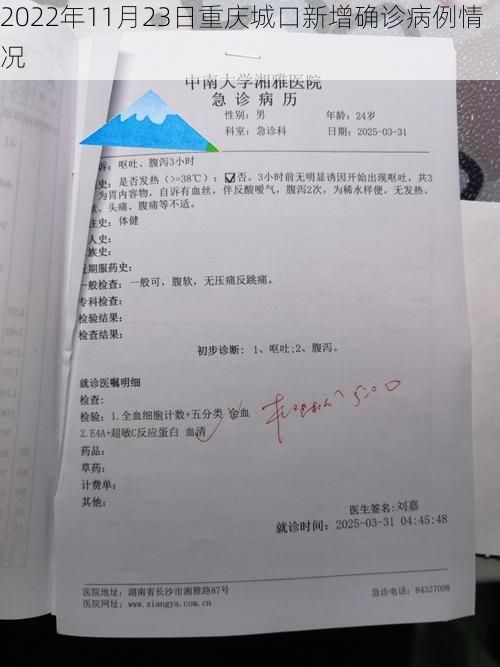 2022年11月23日重庆城口新增确诊病例情
况
中南大学湘雅医院
急诊病历
性别：男 年龄：24岁
科室：急诊科 日期：2025-03-31
诉：呕吐、腹泻3小时
史：是否发热（>=38℃）：☑否。3小时前无明显诱因开始出现呕吐，共3
为胃内容物，自诉有血丝，伴反酸嗳气，腹泻2次，为稀水样便，无发热、
、头痛、腹痛等不适。
往史：体健
人史：
族史：
近期服药史：
一般检查：一般可，腹软，无压痛反跳痛。
专科检查：
检验结果：
检查结果：
初步诊断：1、呕吐;2、腹泻。
就诊医嘱明细
检查：
检验：1.全血细胞计数+五分类 全血
2.E4A+超敏C反应蛋白 血清
药品：
草药：
计费单：
其他：
医生签名:刘嘉
就诊时间：2025-03-31 04:45:48
医院地址：湖南省长沙市湘雅路87号 急诊电话：84327098
医院网址：www.xiangya.com.cn